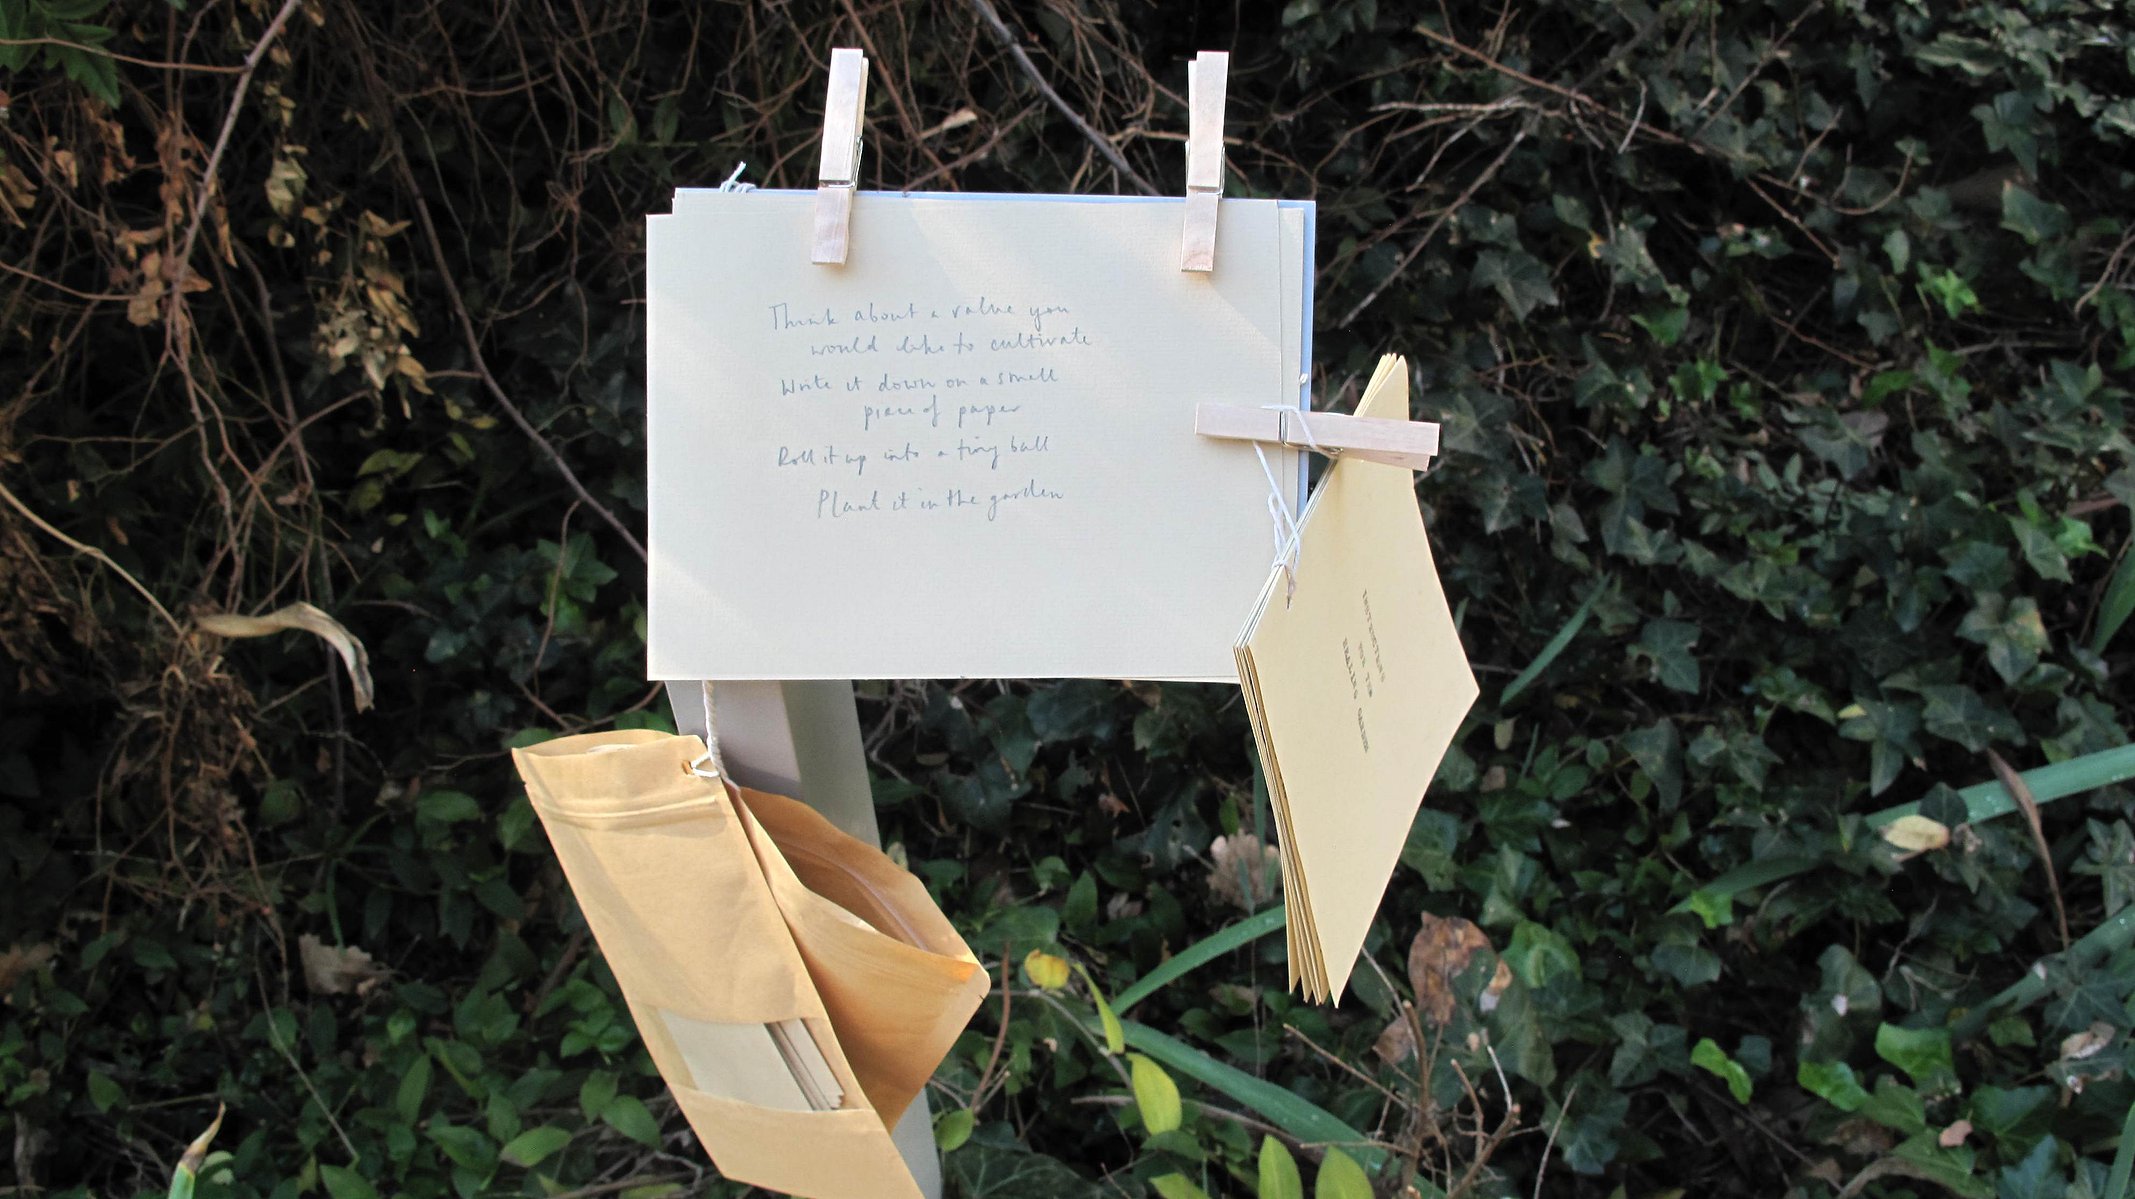 Think about a value you
would like to cultivate
Write it down on a small
piece of paper
Roll it up into a tiny ball
Plant it in the garden
INSTRUCTIONS
FOR THE
WAITING GARDEN